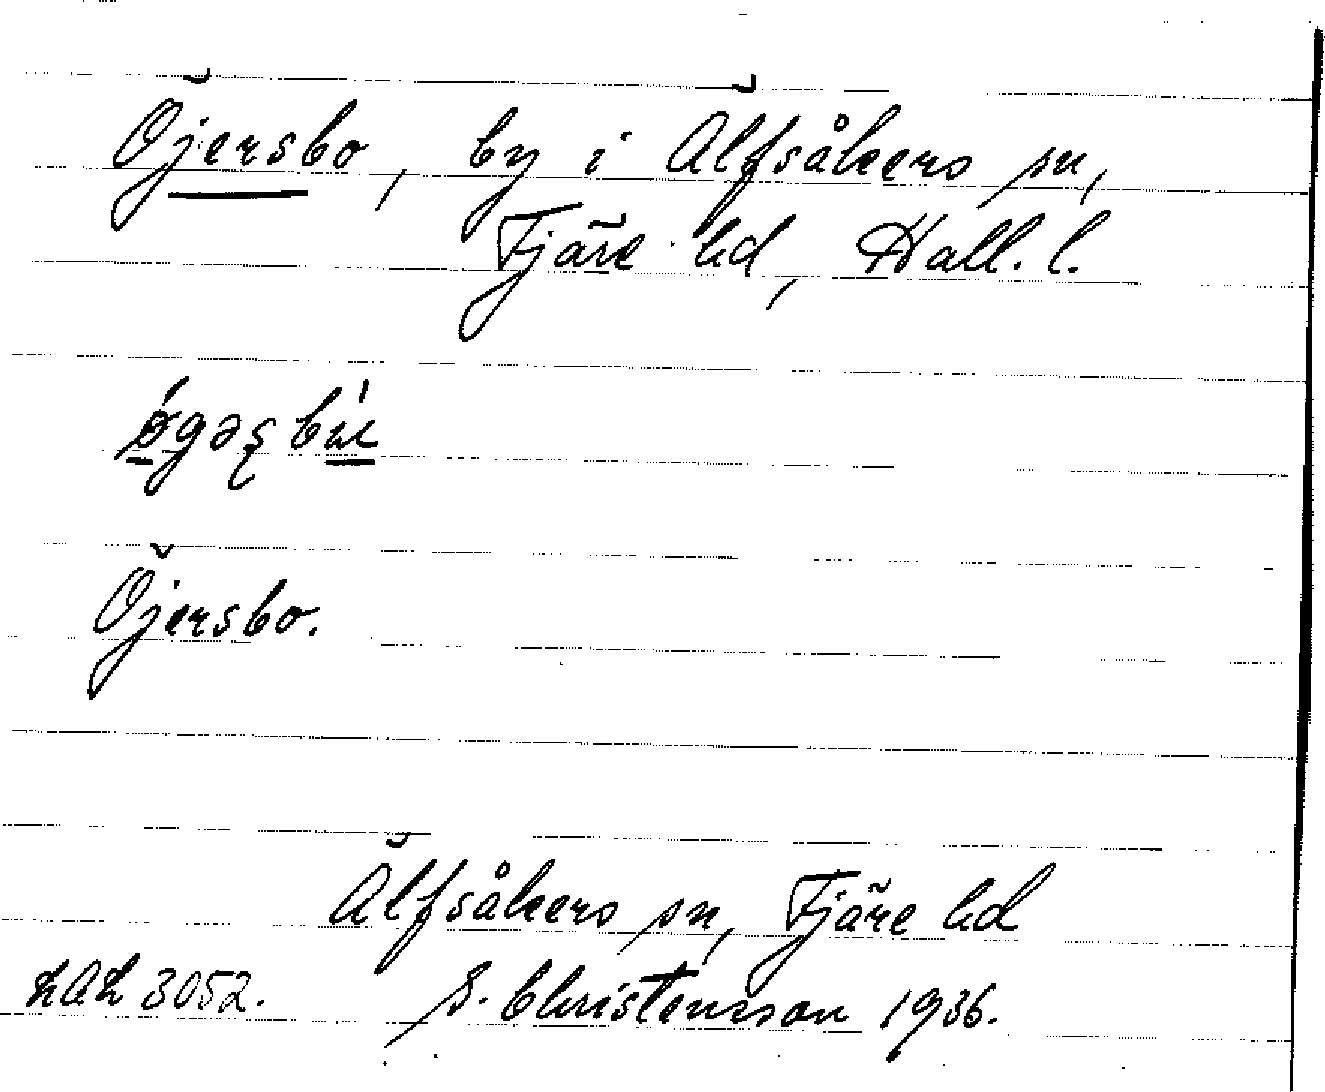 Öjersbo, by i Älfsåkers sn,
Fjäre hd, Hall. l.
Öjersbo.
Älfsåkers sn, Fjäre hd
LAL 3052. S. Christensson 1936.